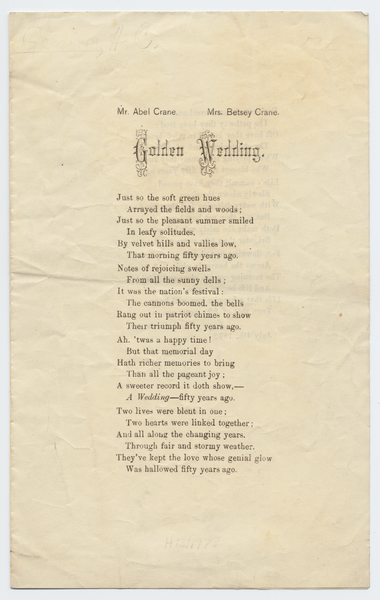 Mr. Abel Crane. Mrs. Betsey Crane.
Golden Wedding.
Just so the soft green hues
Arrayed the fields and woods;
Just so the pleasant summer smiled
In leafy solitudes,
By velvet hills and vallies low,
That morning fifty years ago.
Notes of rejoicing swells
From all the sunny dells;
It was the nation's festival:
The cannons boomed, the bells
Rang out in patriot chimes to show
Their triumph fifty years ago.
Ah, 'twas a happy time!
But that memorial day
Hath richer memories to bring
Than all the pageant joy;
A sweeter record it doth show,—
A Wedding—fifty years ago.
Two lives were blent in one;
Two hearts were linked together;
And all along the changing years,
Through fair and stormy weather,
They've kept the love whose genial glow
Was hallowed fifty years ago.